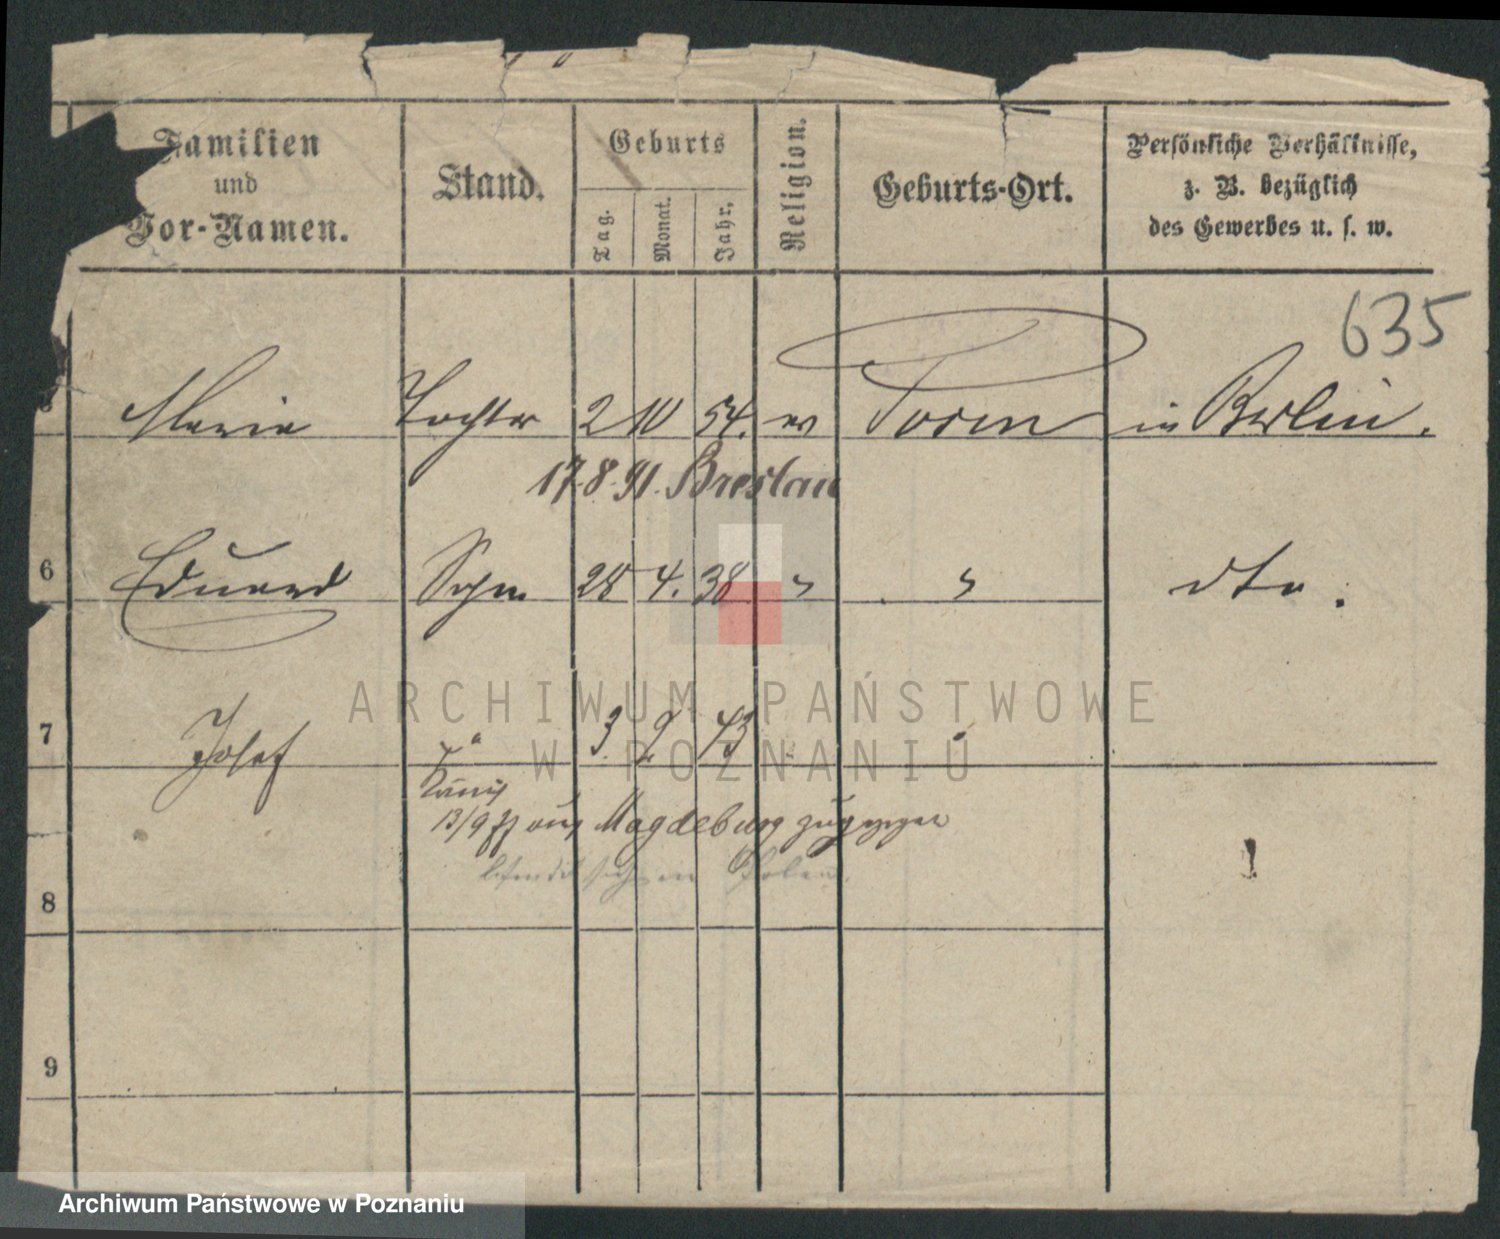 Familien
und
Vor-Namen.
Stand.
Geburts
Tag.
Monat.
Jahr.
Religion.
Geburts-Ort.
Persönliche Verhältnisse,
z. B. bezüglich
des Gewerbes u. s. w.
635
Marie Tochter 2 10 54. ev Posen in Berlin.
17.8.91. Breslau
6 Eduard Sohn 28 4. 38 " " dto.
ARCHIWUM PAŃSTWOWE
W POZNANIU
7 Josef " 3. 2 43
13/9 aus Magdeburg
8
9
Archiwum Państwowe w Poznaniu